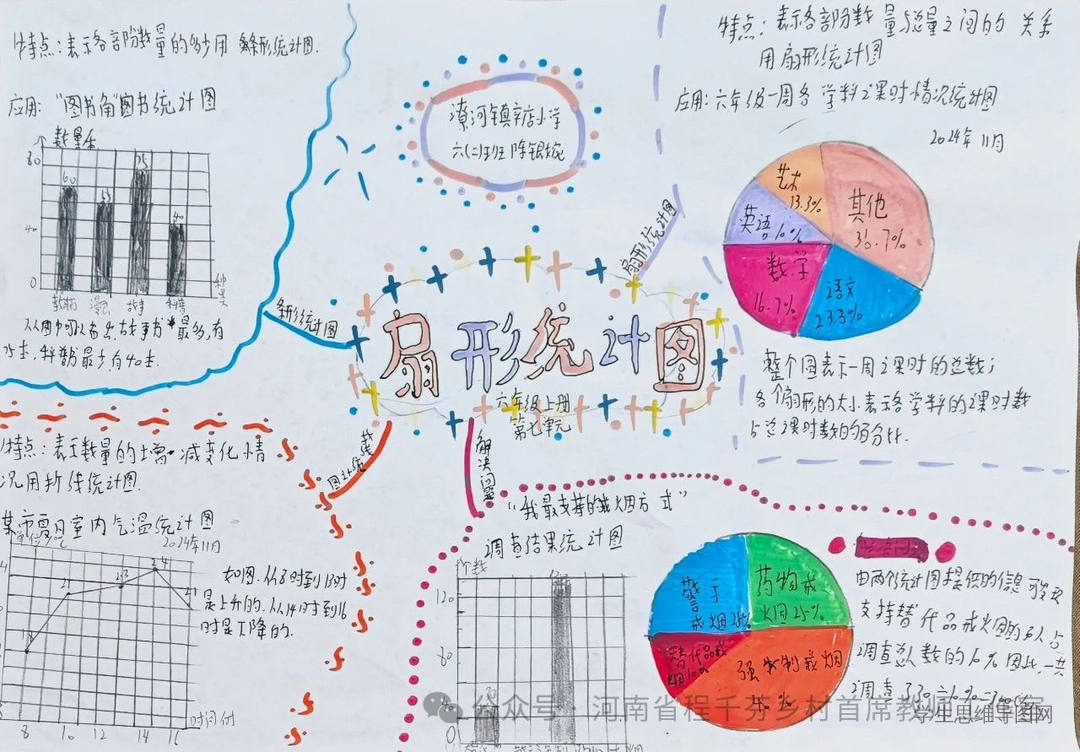 特点：表示各部分数量的多少用 条形统计图.
应用："图书角"图书统计图
数量/本
80
75
60
53
40
40
0
种类
教辅 漫画 故事 科普
从图中可以看出,故事书 最多,有
75本,科普书最少有40本.
潦河镇辛店小学
六(二)班 陈银
特点：表示各部分数量与总量之间的 关系
用扇形统计图
应用：六年级一周各学科课时情况统计图
2024年11月
艺术
13.3%
其他
36.7%
英语 10%
数学
16.7%
语文
23.3%
整个圆表示一周课时的总数；
各个扇形的大小表示各学科的课时数
占总课时数的百分比.
扇形统计图
条形统计图
扇形统计图
六年级上册
第七单元
折线统计图
解决问题
特点：表示数量的增减变化情
况用折线统计图.
某市夏日室内气温统计图
2024年11月
如图.从8时到13时
是上升的.从14时到16
时是下降的.
21
23
24
21
8 10 12 14 16
时间/时
"我最支持的戒烟方式"
调查结果统计图
个数
120
80
警示
戒烟
药物戒
烟25%
替代品戒
烟10%
强制戒烟
40%
由两个统计图提供的信息
支持替代品戒烟的 人占
调查总人数的10% 因此一共
调查了30÷10%=300
公众号 · 河南省程千芬乡村首席教师
学生思维导图网